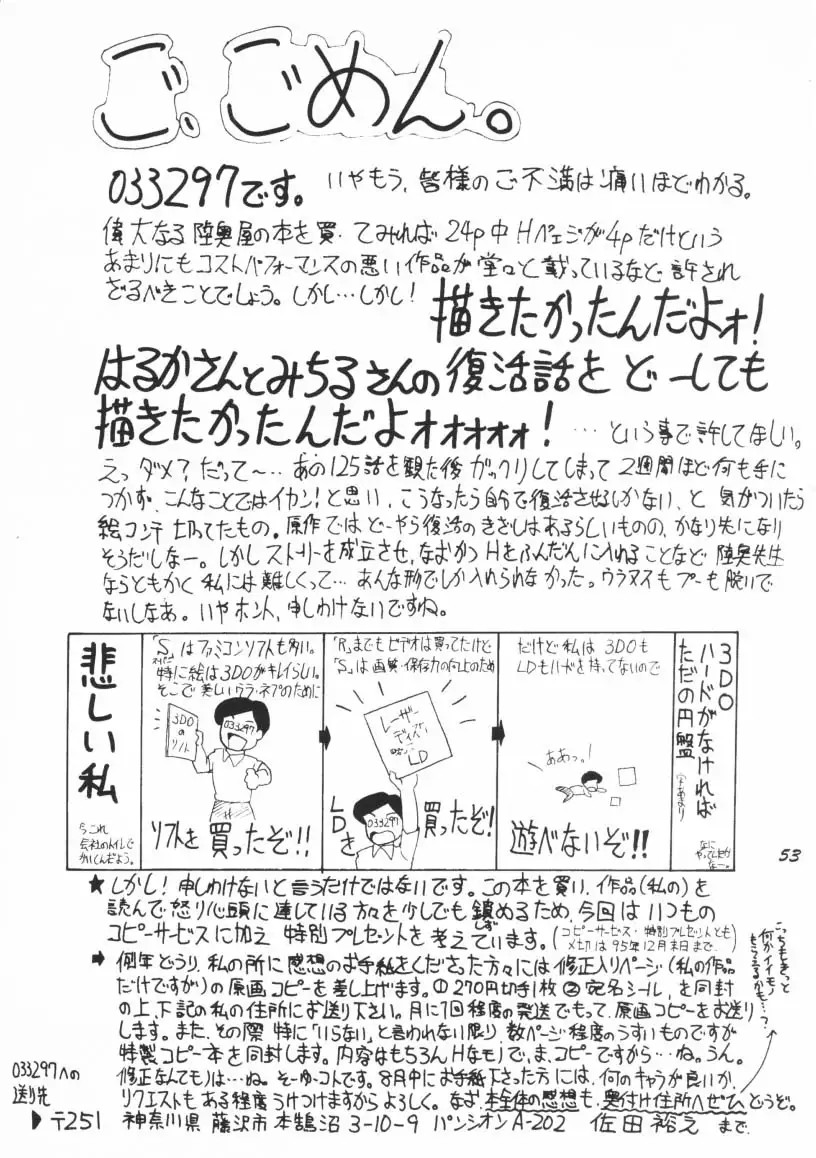 ご、ごめん。
033297です。いやもう、皆様のご不満は痛いほどわかる。
偉大なる陸奥屋の本を買ってみれば24p中Hペェジが4pだけという
あまりにもコストパフォーマンスの悪い作品が堂々と載っているなど許され
ざるべきことでしょう。しかし…しかし!描きたかったんだよォ!
はるかさんとみちるさんの復活話をどーしても
描きたかったんだよォォォォォ!…という事で許してほしい。
えっダメ?だって～…あの125話を観た後ガックリしてしまって2週間ほど何も手に
つかず、こんなことではイカン!と思い、こうなったら自分で復活させるしかない、と気がついたら
絵コンテ切ってたもの。原作ではどーやら復活のきざしはあるらしいものの、かなり先になり
そうだしなー。しかしストーリーを成立させ、なおかつHをふんだんに入れることなど陸奥先生
ならともかく私には難しくって…あんな形でしか入れられなかった。ウラヌスもプーも脱いで
ないしなあ。いやホント、申しわけないですね。
悲しい私
らこれ
会社のトイレで
かいてんだよう。
「S」はファミコンソフトも多い。
特に絵は3DOがキレイらしい。
そこで美しいウラ・ネプのために
3DO
の
ソフト
033297
ソフトを買ったぞ!!
「R」までもビデオは買ってたけど
「S」は画質・保存力の向上のため
レーザー
ディスク
LD
033297
LDを買ったぞ!
だけど私は3DOも
LDもハードを持ってないので
ああっ。!
遊べないぞ!!
3DO
ハードがなければ
ただの円盤
(字あまり)
なに
やってんだか
なー。
53
★しかし!申しわけないと言うだけではないです。この本を買い、作品(私の)を
読んで怒り心頭に達している方々を少しでも鎮めるため、今回はいつもの
しず
コピーサービスに加え特別プレゼントを考えています。(コピーサービス・特別プレゼントとも
〆切は95年12月末日まで。)
➡例年どうり、私の所に感想のお手紙をくださった方々には修正入りページ(私の作品
だけですが)の原画コピーを差し上げます。①270円切手1枚②宛名シール、を同封
の上、下記の私の住所にお送り下さい。月に1回程度の発送でもって、原画コピーをお送り
します。また、その際特に「いらない」と言われない限り、数ページ程度のうすいものですが
特製コピー本を同封します。内容はもちろんHなモノで、ま、コピーですから…ね。うん。
修正なんてものは…ね。そーゆーコトです。8月中にお手紙下さった方には、何のキャラが良いか、
リクエストもある程度うけつけますからよろしく。なお、本全体の感想も、奥付け住所へぜひどうぞ。
こっちもきっと
何かイイモノ
もらえるかも…?
033297への
送り先
▶〒251 神奈川県 藤沢市 本鵠沼 3-10-9 パンシオンA-202 佐田裕之 まで。